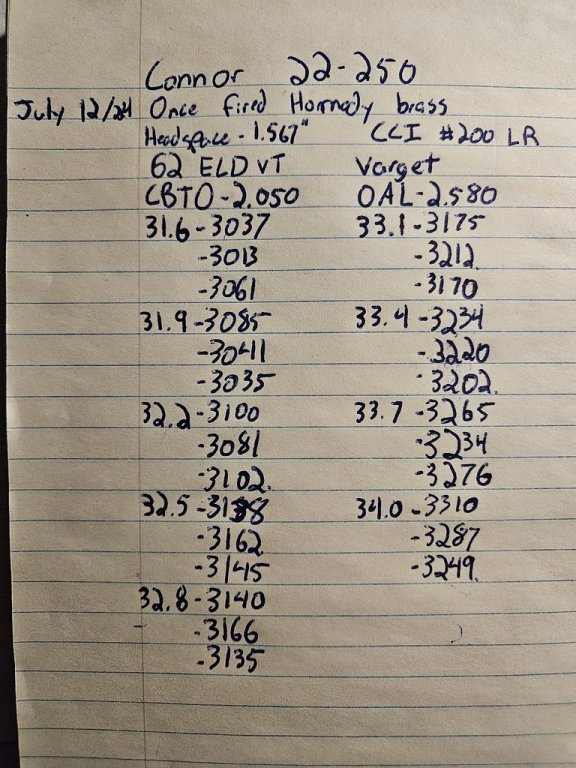 Connor 22-250
July 12/24 Once fired Hornady brass
Headspace - 1.567" CCI #200 LR
62 ELD VT Varget
CBTO-2.050 OAL-2.580
31.6-3037 33.1-3175
-3013 -3212
-3061 -3170
31.9-3085 33.4-3234
-3041 -3220
-3035 -3202
32.2-3100 33.7-3265
-3081 -3234
-3102 -3276
32.5- 34.0-3310
-3162 -3287
-3145 -3249
32.8-3140
-3166
-3135